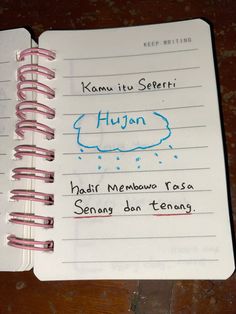 KEEP WRITING
Kamu itu Seperti
Hujan
hadir Membawa rasa
Senang dan tenang.